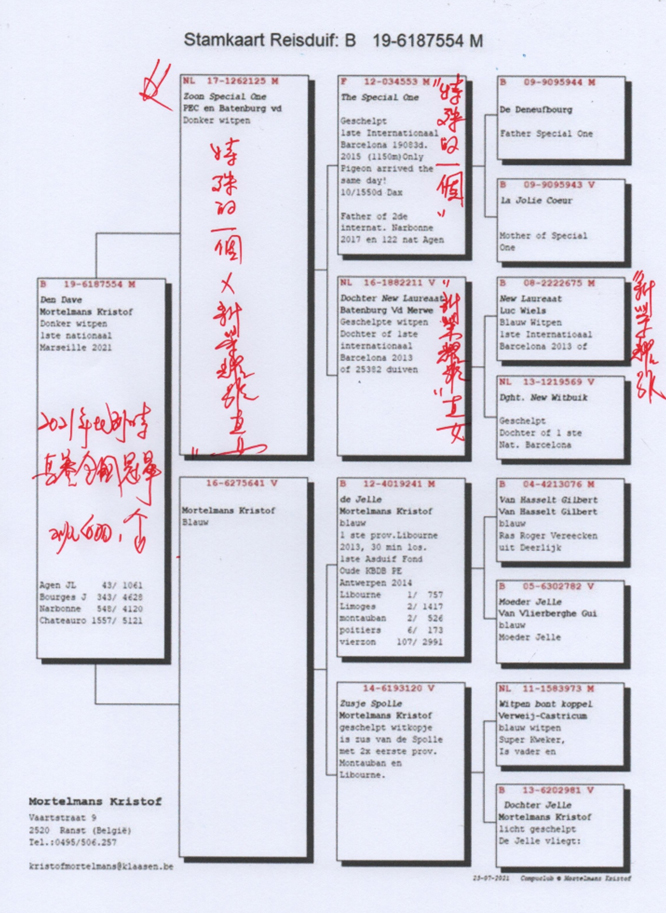 Stamkaart Reisduif: B 19-6187554 M
B 19-6187554 M
Den Dave
Mortelmans Kristof
Donker witpen
1ste nationaal
Marseille 2021
2021年
全國冠軍
Agen JL 43/ 1061
Bourges J 343/ 4628
Narbonne 548/ 4120
Chateauro 1557/ 5121
NL 17-1262125 M
Zoon Special One
PEC en Batenburg vd
Donker witpen
特殊的一個 X 新榮耀號直女
16-6275641 V
Mortelmans Kristof
Blauw
F 12-034553 M
The Special One
Geschelpt
1ste Internationaal
Barcelona 19083d.
2015 (1150m)Only
Pigeon arrived the
same day!
10/1550d Dax
Father of 2de
internat. Narbonne
2017 en 122 nat Agen
"特殊的一個"
NL 16-1882211 V
Dochter New Laureaat
Batenburg Vd Merwe
Geschelpte witpen
Dochter of 1ste
internationaal
Barcelona 2013
of 25382 duiven
"新榮耀號"直女
B 12-4019241 M
de Jelle
Mortelmans Kristof
blauw
1 ste prov.Libourne
2013, 30 min los.
1ste Asduif Fond
Oude KBDB PE
Antwerpen 2014
Libourne 1/ 757
Limoges 2/ 1417
montauban 2/ 526
poitiers 6/ 173
vierzon 107/ 2991
14-6193120 V
Zusje Spolle
Mortelmans Kristof
geschelpt witkopje
is zus van de Spolle
met 2x eerste prov.
Montauban en
Libourne.
B 09-9095944 M
De Deneufbourg
Father Special One
B 09-9095943 V
La Jolie Coeur
Mother of Special
One
B 08-2222675 M
New Laureaat
Luc Wiels
Blauw Witpen
1ste Internatioaal
Barcelona 2013 of
"新榮耀號"
NL 13-1219569 V
Dght. New Witbuik
Geschelpt
Dochter of 1 ste
Nat. Barcelona
B 04-4213076 M
Van Hasselt Gilbert
Van Hasselt Gilbert
blauw
Ras Roger Vereecken
uit Deerlijk
B 05-6302782 V
Moeder Jelle
Van Vlierberghe Gui
blauw
Moeder Jelle
NL 11-1583973 M
Witpen bont koppel
Verweij-Castricum
blauw witpen
Super Kweker,
Is vader en
B 13-6202981 V
Dochter Jelle
Mortelmans Kristof
licht geschelpt
De Jelle vliegt:
Mortelmans Kristof
Vaartstraat 9
2520 Ranst (België)
Tel.:0495/506.257
kristofmortelmans@klaasen.be
23-07-2021 Compuclub © Mortelmans Kristof